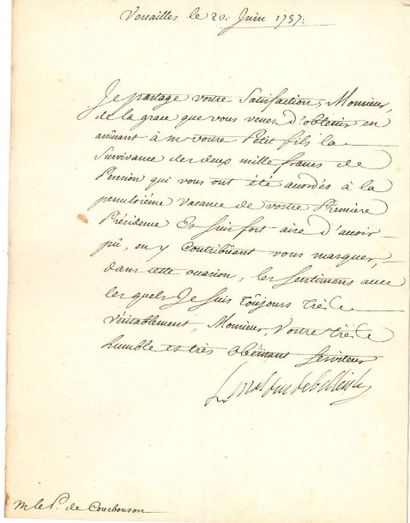 Versailles le 20. Juin 1757.
Je partage votre Satisfaction, Monsieur,
de la grace que vous venez d'obtenir en
a M votre Petit fils la
Survivance des deux mille francs de
Pension qui vous ont été acordés à la
vacance de vostre Premiere
Présidence Et suis fort aise d'avoir
pû, en y Contribüant vous marquer,
dans cette ocasion, les Sentimens avec
lesquels Je suis Toûjours Trés
véritablement, Monsieur, Votre Trés
humble et très Obéissant Serviteur
m le P. de Courbouson